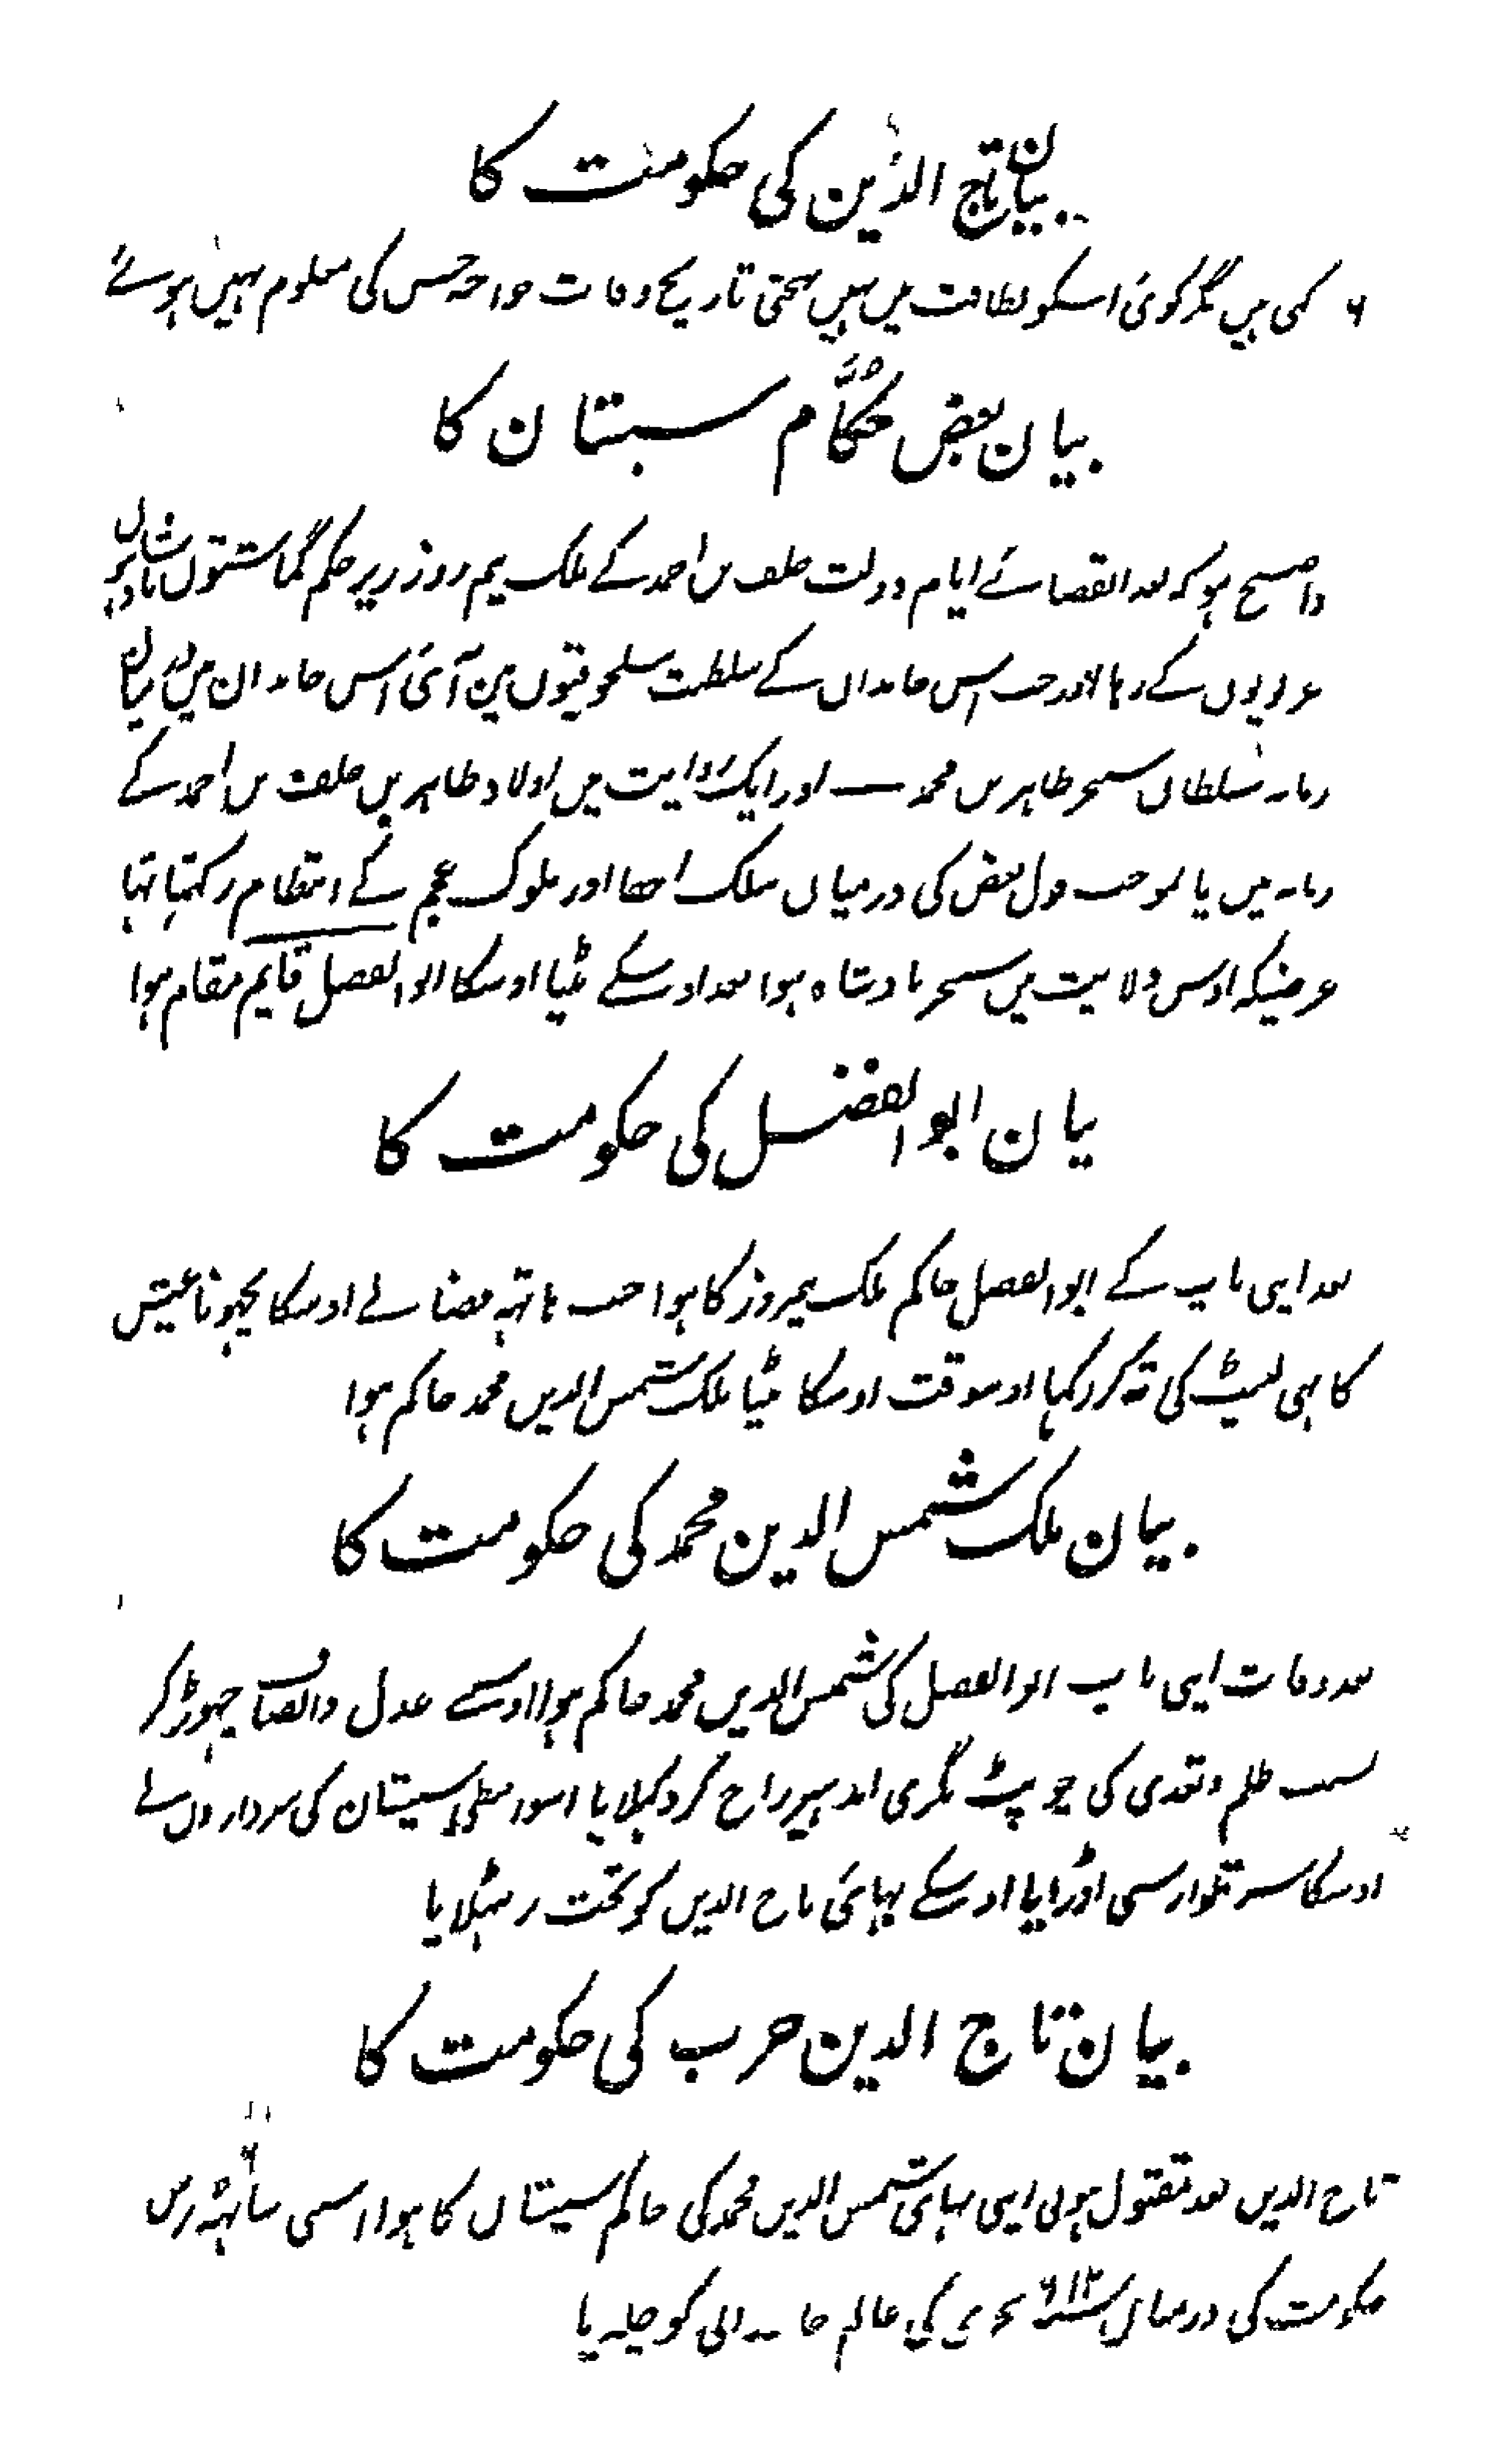 بیان تاج الدین کی حکومت کا
کی ہیں مگر کوئی اسکو لطافت میں نہیں پہنچتی تاریخ وفات خواجہ حسن کی معلوم نہیں ہوئے
بیان بعض حکّام سیستان کا
واضح ہو کہ بعد انقضائے ایام دولت خلف بن احمد کے ملک نیمروز زیر حکم گماشتوں
غزنویوں کے رہا اور جب اس خاندان کے سلطنت سلجوقیوں میں آئی اس خاندان میں
زمانہ سلطان سنجر طاہر بن محمد اور ایک روایت میں اولاد طاہر بن خلف بن احمد کے
زمانہ میں یا بموجب قول بعض کی درمیان ملک اور ملوک عجم کے انتظام رکہتا تہا
غرضیکہ اوس ولایت میں سنجر بادشاہ ہوا بعد اوسکے بیٹا اوسکا ابو الفضل قایم مقام ہوا
بیان ابو الفضل کی حکومت کا
بعد اپنی باپ کے ابو الفضل حاکم ملک نیمروز کا ہوا جب ہاتہہ قضا نے اوسکا بچہونا عیش
کا ہی لپیٹ کی تہ کر رکہا اوسوقت اوسکا بیٹا ملک شمس الدین محمد حاکم ہوا
بیان ملک شمس الدین محمد کی حکومت کا
بعد وفات اپنی باپ ابو الفضل کی شمس الدین محمد حاکم ہوا اوسنے عدل و انصاف چہوڑ کر
بسبب ظلم و تعدی کی چوپٹ نگری اندہیر راج کر دکہلایا اسواسطی سیستان کی سرداروں نے
اوسکا سر تلوار سی اوڑایا اوسکے بہائی تاج الدین کو تخت پر بٹہلایا
بیان تاج الدین حرب کی حکومت کا
تاج الدین بعد مقتول ہونی اپنی بہائی شمس الدین محمد کی حاکم سیستان کا ہوا اسی ساٹہہ برس
حکومت کی درمیان ۶۱۲ ہجری کی عالم جاودانی کو چلدیا